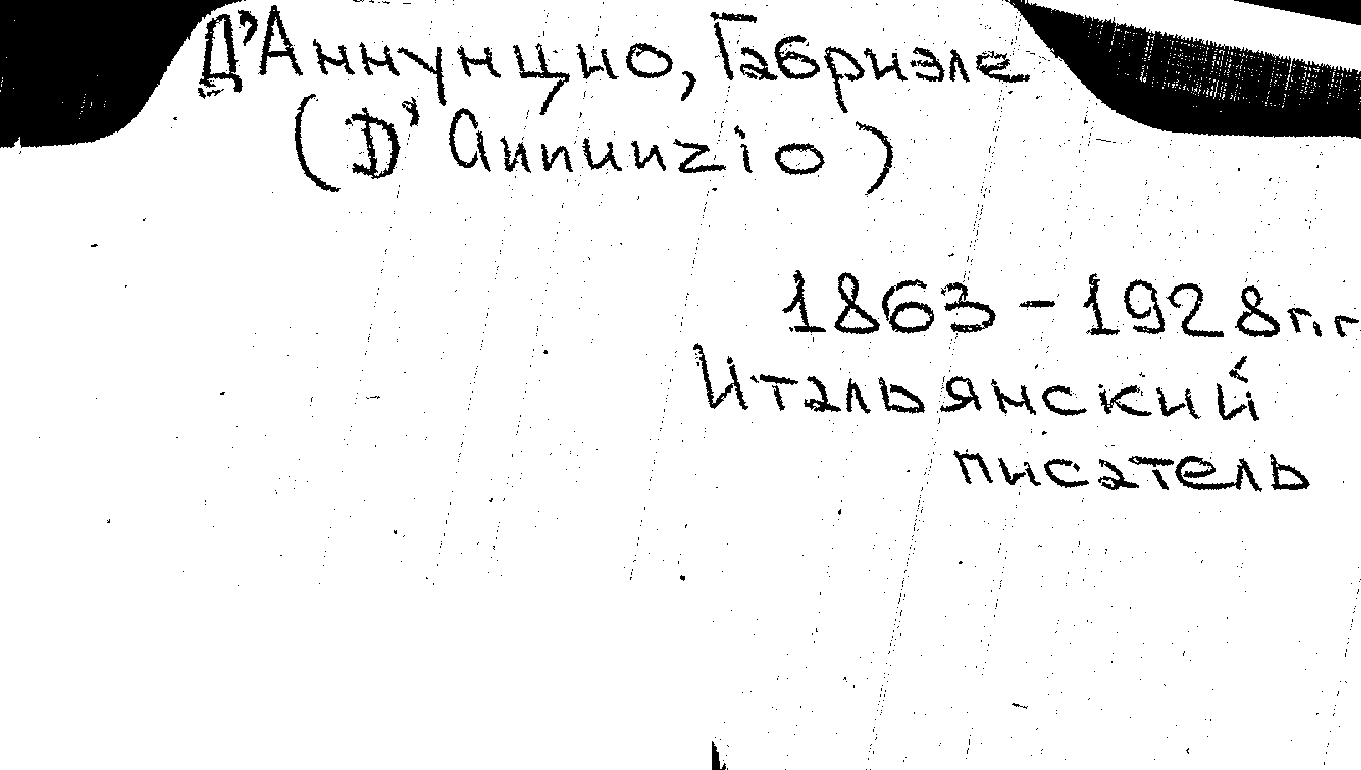 Д'Аннунцио, Габриэле
(D' Annunzio)
1863-1928 гг
Итальянский
писатель